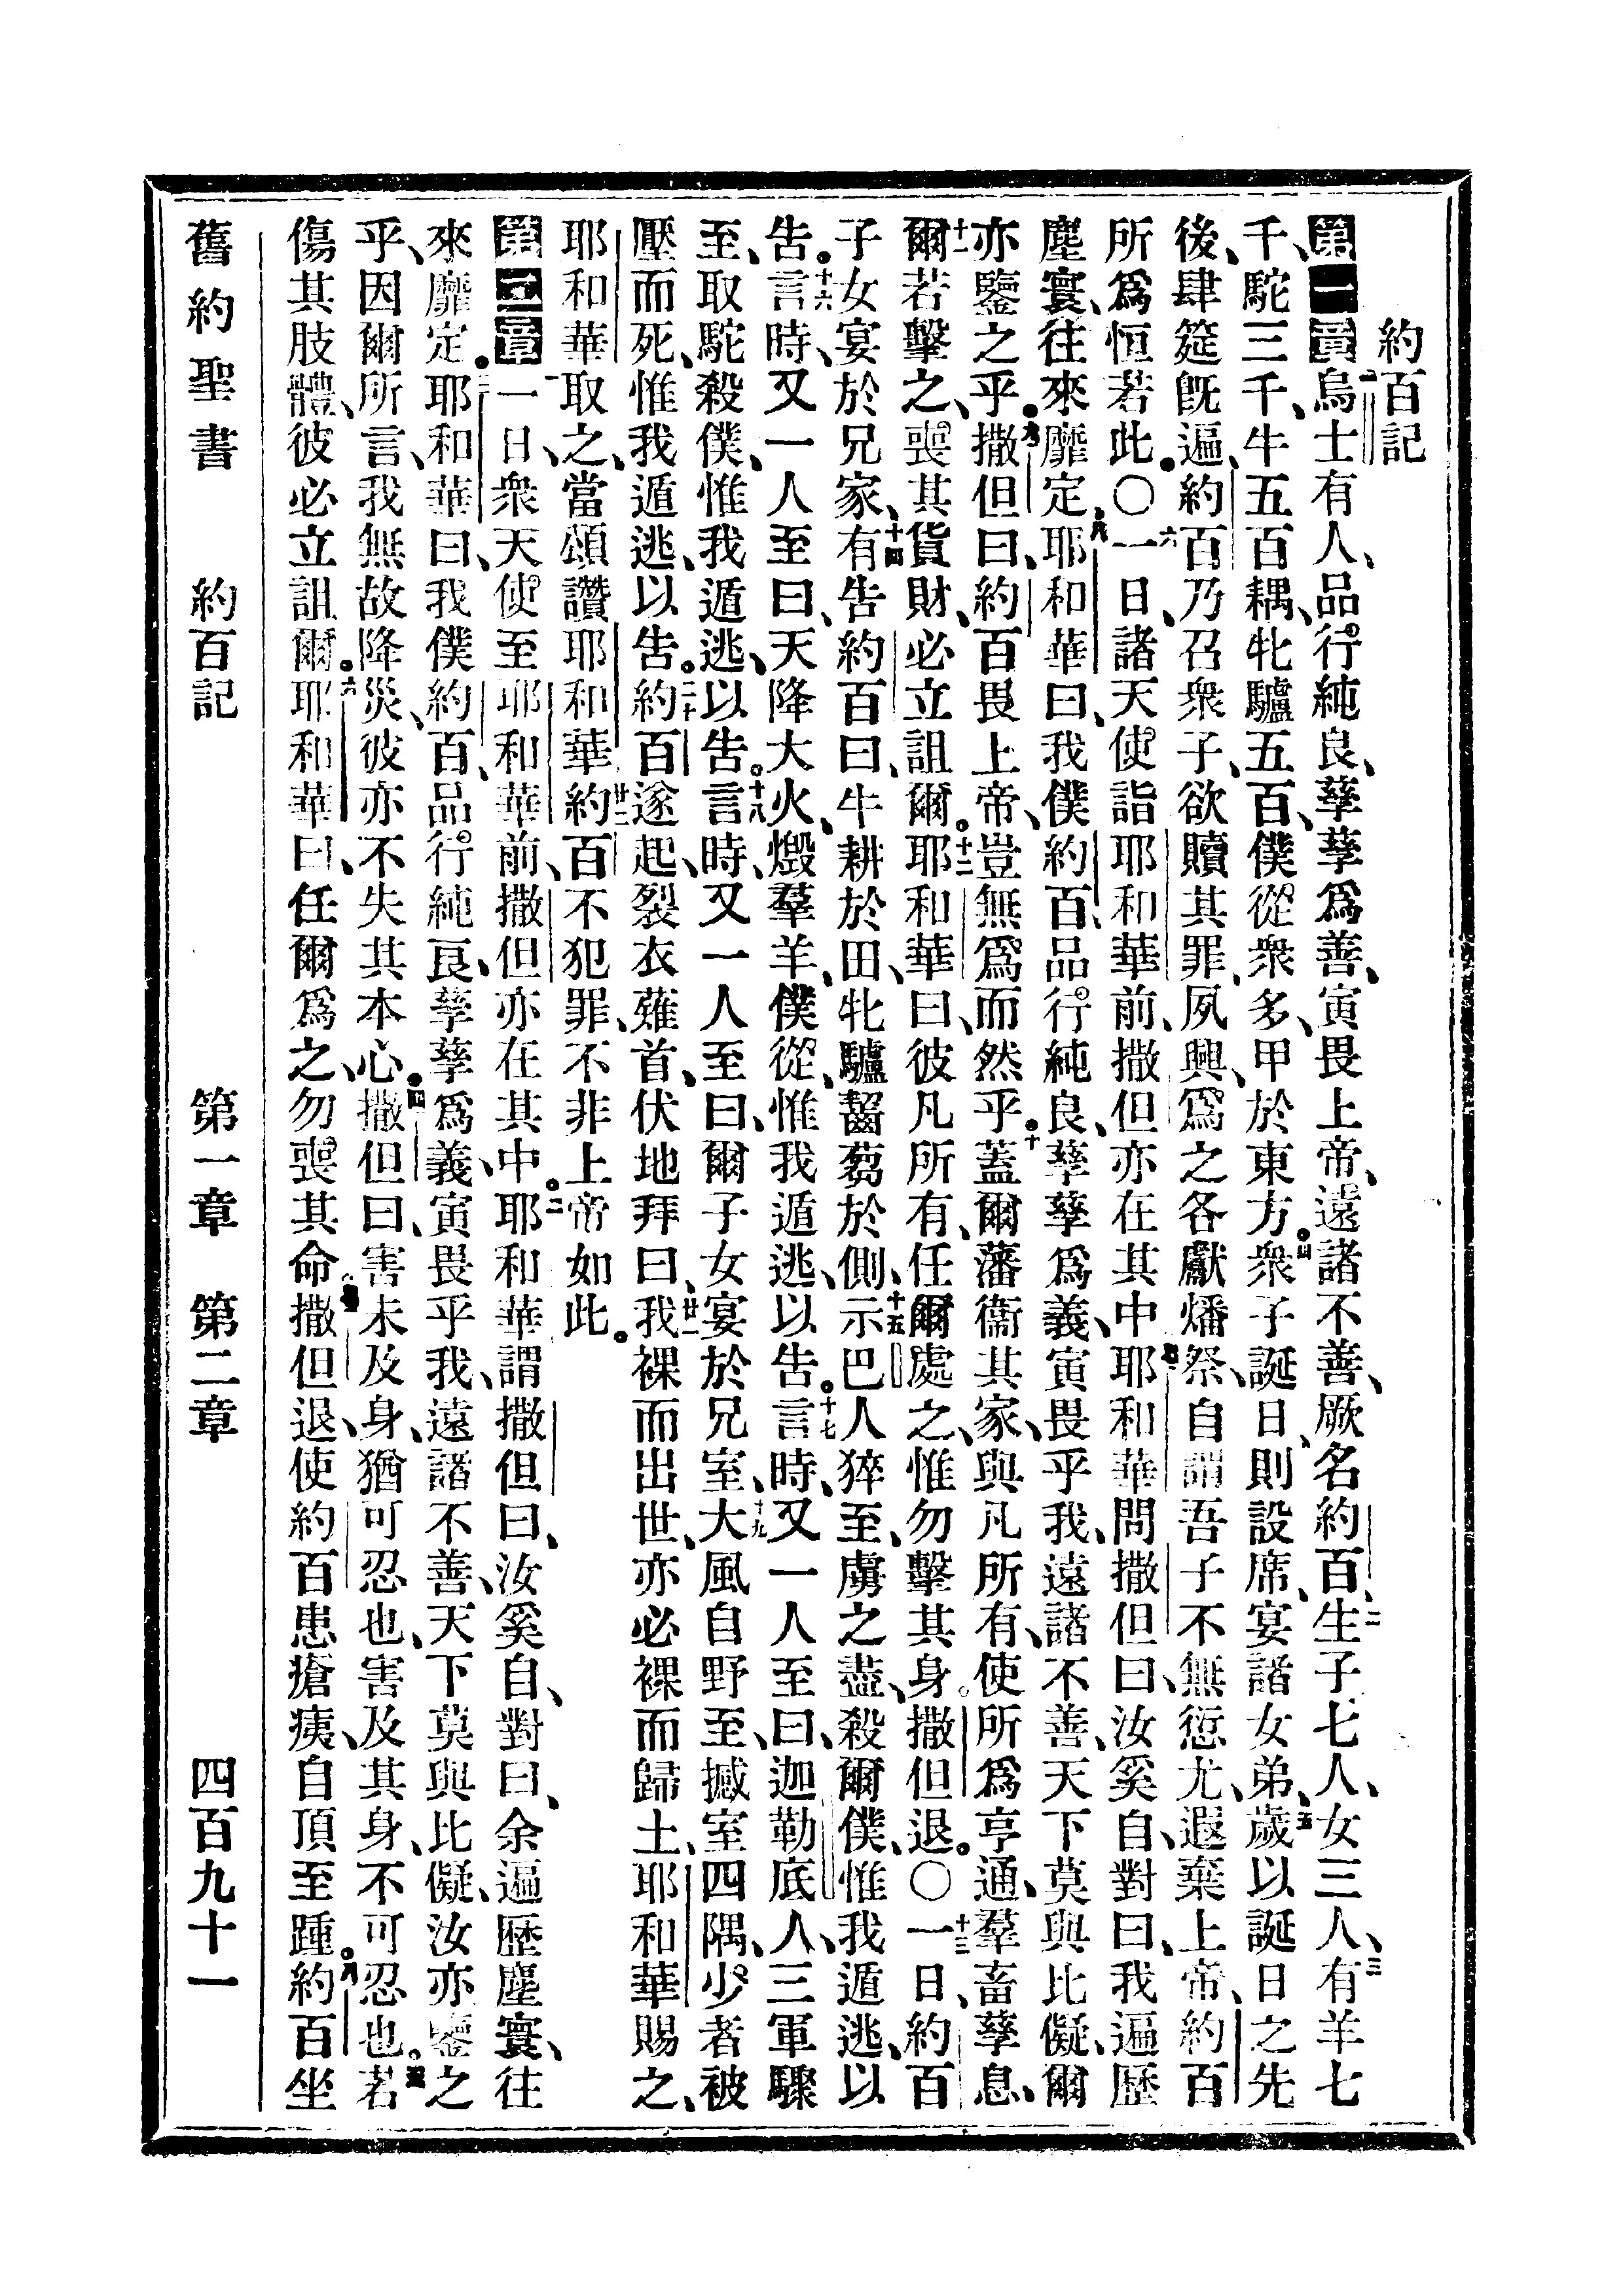 約百記
第一章一烏士有人、品行純良、孳孳爲善、寅畏上帝、遠諸不善、厥名約百、二生子七人、女三人、三有羊七
千、駝三千、牛五百耦、牝驢五百、僕從衆多、甲於東方。四衆子誕日、則設席、宴諸女弟、五歲以誕日之先
後、肆筵旣遍、約百乃召衆子、欲贖其罪、夙興、爲之各獻燔祭、自謂吾子不無愆尤、遐棄上帝、約百
所爲恒若此。〇六一日、諸天使詣耶和華前、撒但亦在其中、七耶和華問撒但曰、汝奚自、對曰、我遍歷
塵寰、往來靡定、八耶和華曰、我僕約百、品行純良、孳孳爲義、寅畏乎我、遠諸不善、天下莫與比儗、爾
亦鑒之乎。九撒但曰、約百畏上帝、豈無爲而然乎。十蓋爾藩衞其家、與凡所有、使所爲亨通、羣畜孳息、
十一爾若擊之、喪其貨財、必立詛爾。十二耶和華曰、彼凡所有、任爾處之、惟勿擊其身。撒但退。〇十三一日、約百
子女宴於兄家、十四有告約百曰、牛耕於田、牝驢齧芻於側、十五示巴人猝至、虜之盡、殺爾僕、惟我遁逃、以
告。十六言時、又一人至曰、天降大火、燬羣羊、僕從、惟我遁逃、以告。十七言時、又一人至曰、迦勒底人、三軍驟
至、取駝殺僕、惟我遁逃、以告。十八言時、又一人至曰、爾子女宴於兄室、十九大風自野至、撼室四隅、少者被
壓而死、惟我遁逃、以告。二十約百遂起、裂衣薙首、伏地拜曰、廿一我裸而出世、亦必裸而歸土、耶和華賜之、
耶和華取之、當頌讚耶和華、廿二約百不犯罪、不非上帝如此。
第二章一一日、衆天使至耶和華前、撒但亦在其中。二耶和華謂撒但曰、汝奚自、對曰、余遍歷塵寰、往
來靡定。三耶和華曰、我僕約百、品行純良、孳孳爲義、寅畏乎我、遠諸不善、天下莫與比儗、汝亦鑒之
乎、因爾所言、我無故降災、彼亦不失其本心。四撒但曰、害未及身、猶可忍也、害及其身、不可忍也。五若
傷其肢體、彼必立詛爾。六耶和華曰、任爾爲之、勿喪其命、七撒但退、使約百患瘡痍、自頂至踵。八約百坐
舊約聖書 約百記 第一章 第二章 四百九十一